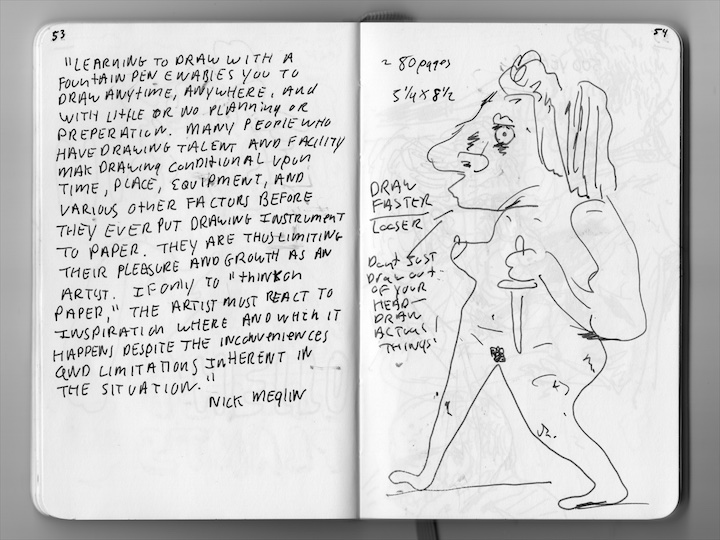 53
"LEARNING TO DRAW WITH A
FOUNTAIN PEN ENABLES YOU TO
DRAW ANYTIME, ANYWHERE, AND
WITH LITTLE OR NO PLANNING OR
PREPERATION. MANY PEOPLE WHO
HAVE DRAWING TALENT AND FACILITY
MAK DRAWING CONDITIONAL UPON
TIME, PLACE, EQUIPMENT, AND
VARIOUS OTHER FACTORS BEFORE
THEY EVER PUT DRAWING INSTRUMENT
TO PAPER. THEY ARE THUS LIMITING
THEIR PLEASURE AND GROWTH AS AN
ARTIST. IF ONLY TO "THINK ON
PAPER," THE ARTIST MUST REACT TO
INSPIRATION WHERE AND WHEN IT
HAPPENS DESPITE THE INCONVENIENCES
AND LIMITATIONS INHERENT IN
THE SITUATION."
NICK MEGLIN
54
~ 80 pages
5 1/4 X 8 1/2
DRAW
FASTER
LOOSER
Dont JUST
Draw out
OF YOUR
HEAD—
DRAW
ACTUAL
THINGS!